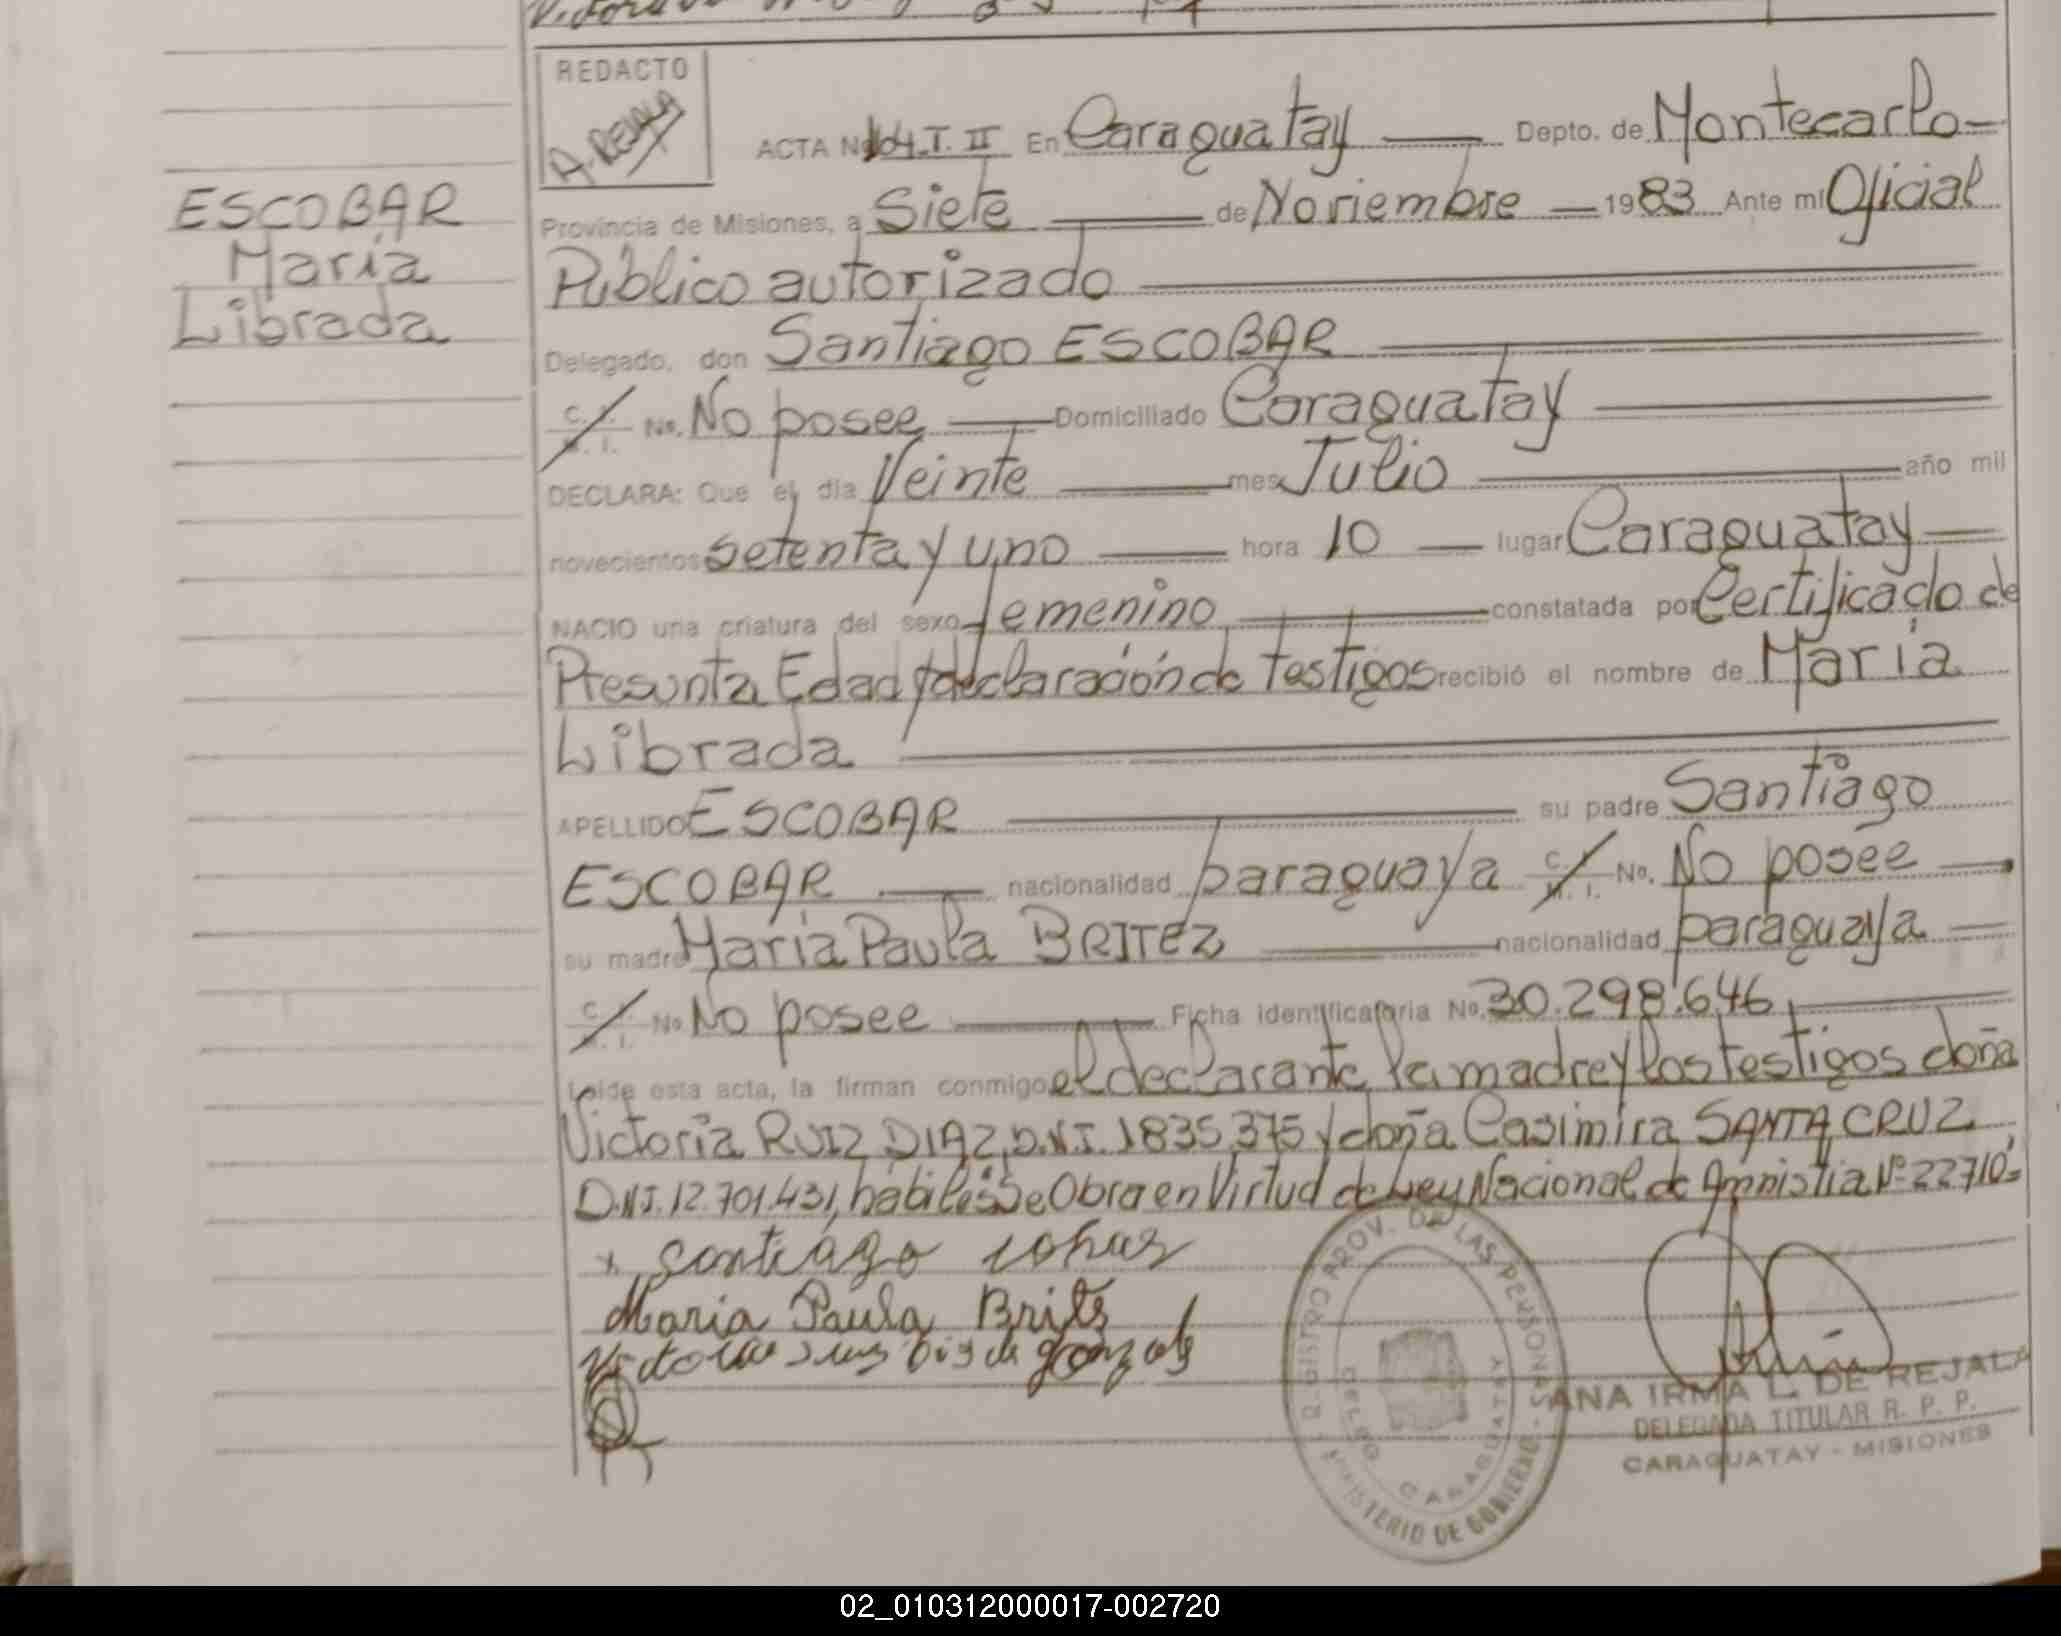 REDACTO
A. REJALA
ACTA No 104 T. II En Caraguatay Depto. de Montecarlo
Provincia de Misiones, a Siete de Noviembre 1983 Ante mí Oficial
Público autorizado
Delegado, don Santiago ESCOBAR
C. I. M. I. No. No posee Domiciliado Caraguatay
DECLARA: Que el día Veinte mes Julio año mil
novecientos setenta y uno hora 10 lugar Caraguatay
NACIO una criatura del sexo femenino constatada por Certificado de
Presunta Edad y declaración de testigos recibió el nombre de María
Librada
APELLIDO ESCOBAR su padre Santiago
ESCOBAR nacionalidad paraguaya C. I. M. I. No. No posee
su madre María Paula BRITEZ nacionalidad paraguaya
C. I. M. I. No. No posee Ficha identificatoria No. 30.298.646
Leída esta acta, la firman conmigo el declarante, la madre y los testigos doña
Victoria RUIZ DIAZ, D.N.I. 1835.375 y doña Casimira SANTA CRUZ
D.N.I. 12.701.431, hábiles Se Obra en Virtud de Ley Nacional de Amnistia Nº 22710
x Santiago
Maria Paula Brits
ESCOBAR
María
Librada
REGISTRO PROV. DE LAS PERSONAS
MINISTERIO DE GOBIERNO
DELEG. CARAGUATAY
ANA IRMA L. DE REJALA
DELEGADA TITULAR R. P. P.
CARAGUATAY - MISIONES
02_010312000017-002720